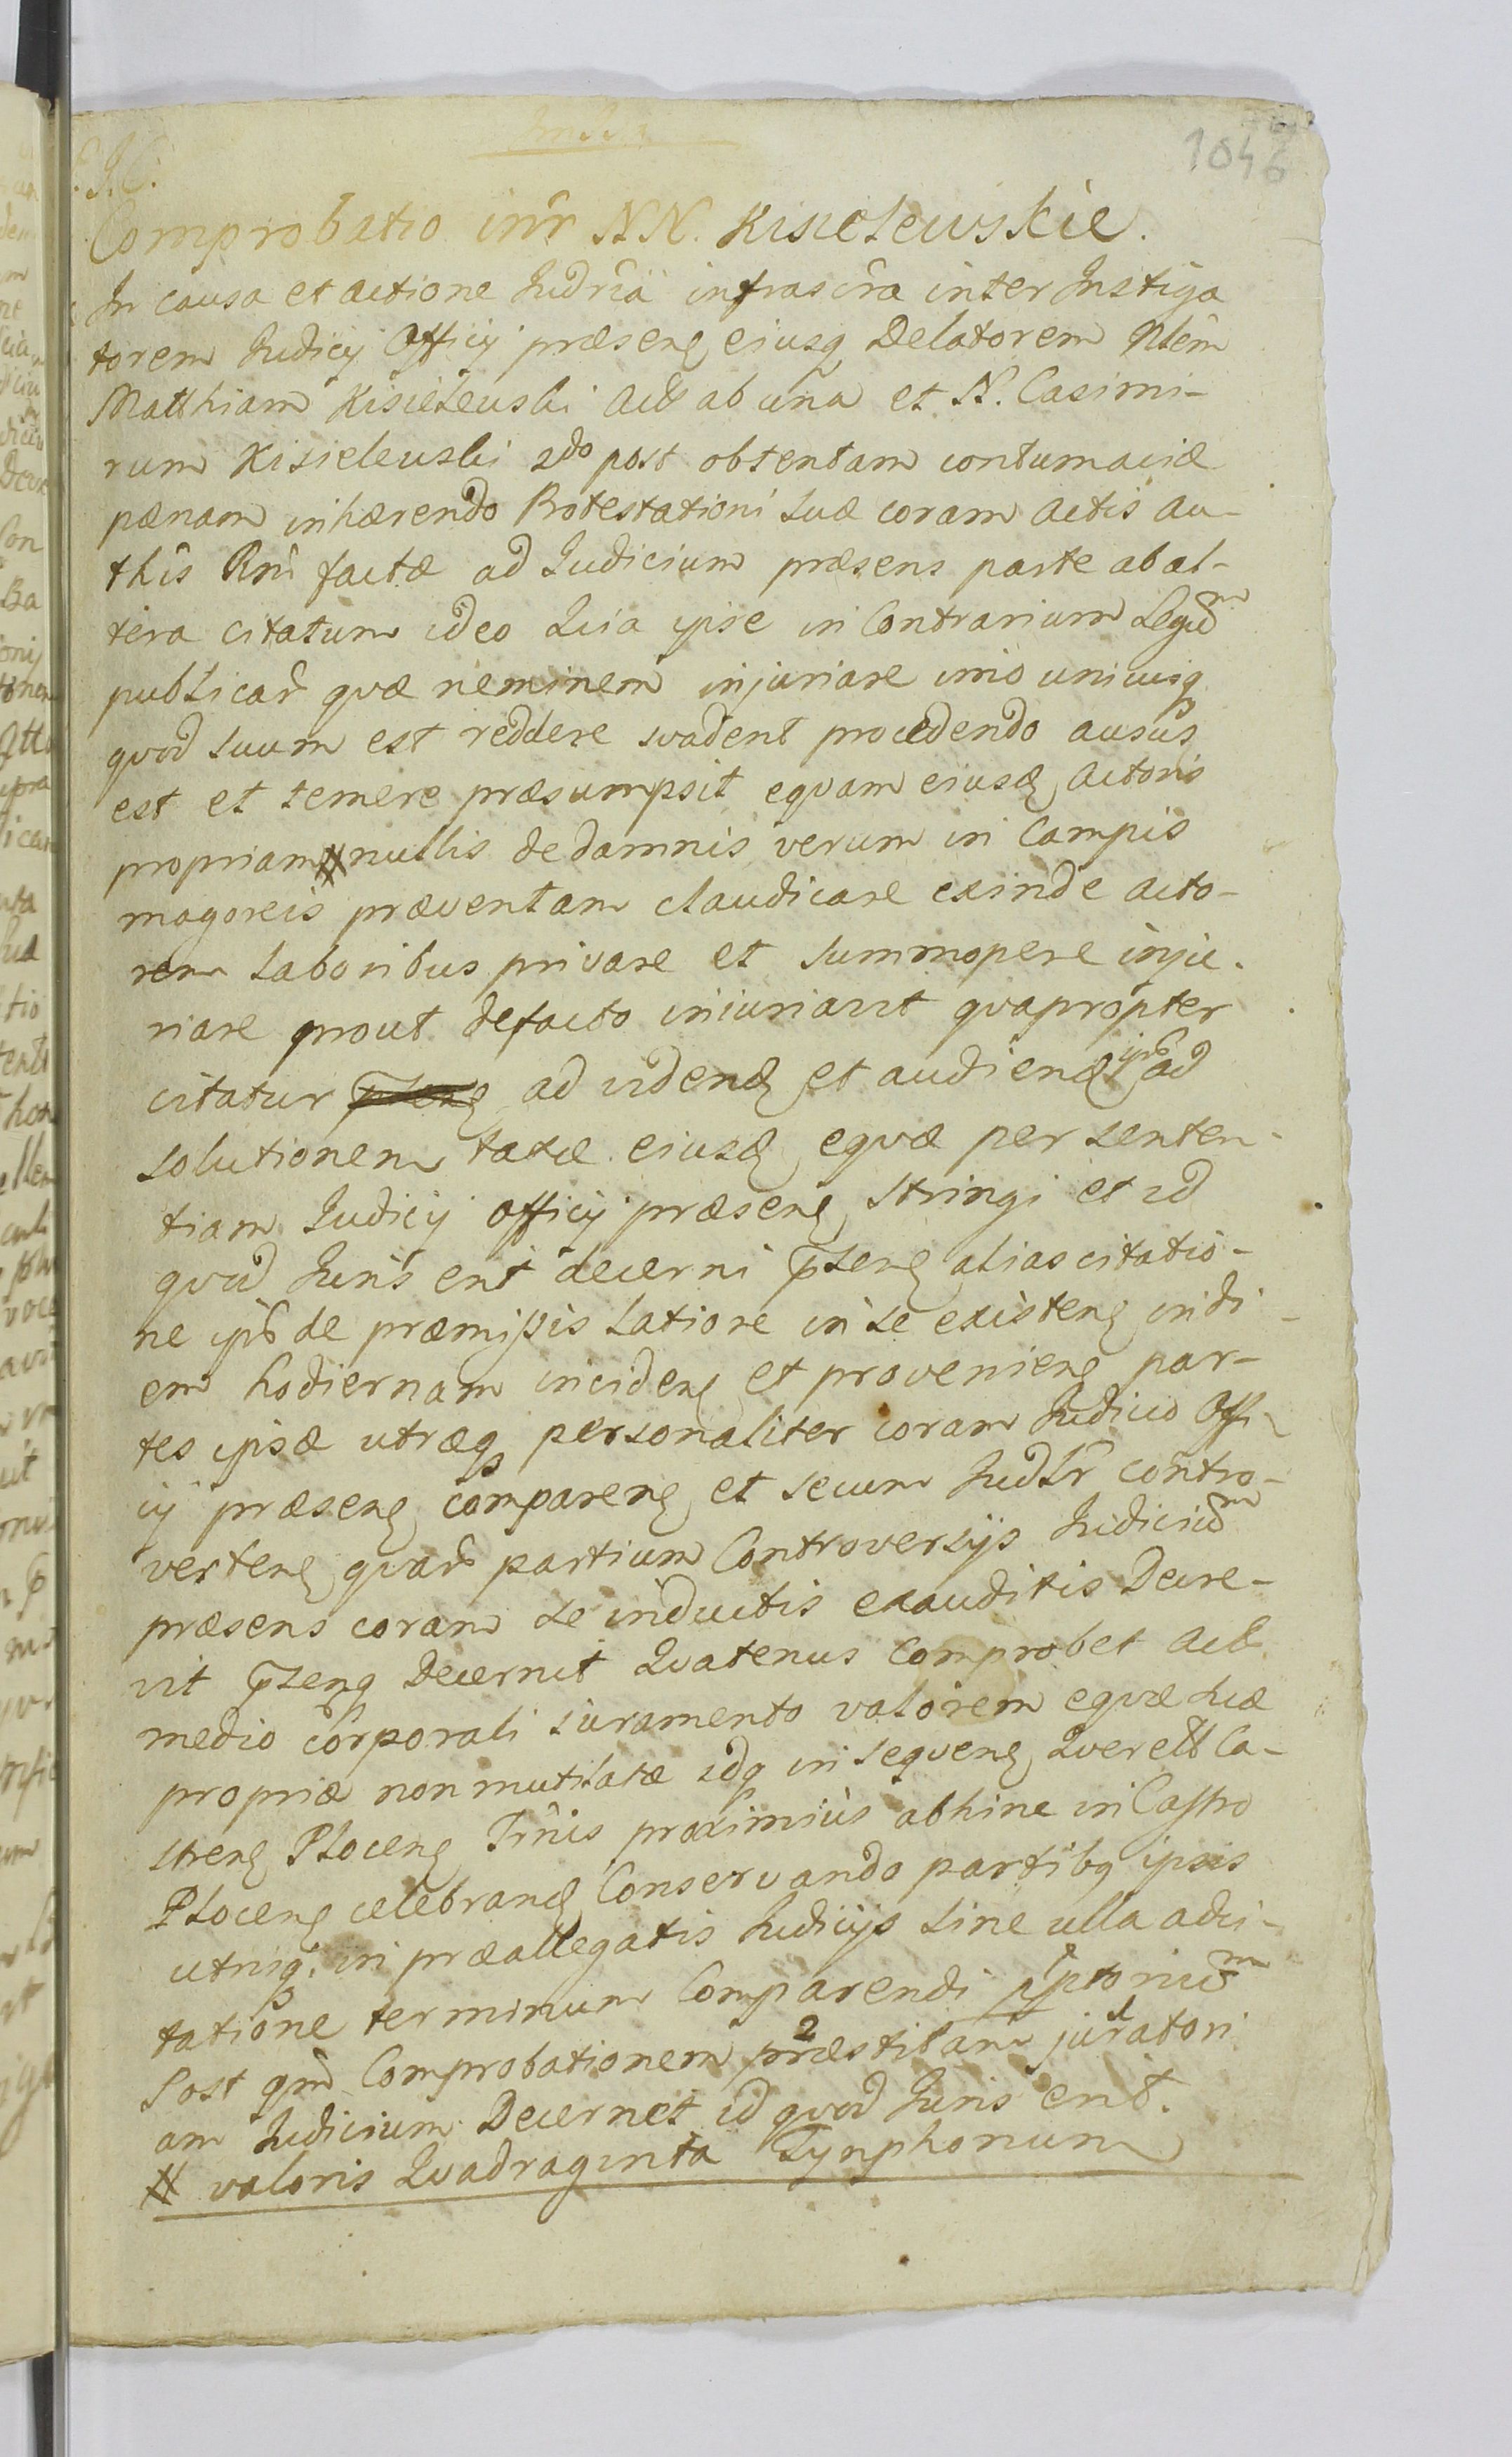 1046
Comprobatio intr NN. Kisielewskie.
In causa et actione Judria infrascra inter Instiga
torem Judicij Officij præsenѕ ejusq Delatorem Nblem
Matthiam Kisielewski Act ab una et N. Casimi-
rum Kisielewski 2do post obtentam contumaciæ
pænam inhærendo Protestationi suæ coram actis au-
this Rni factæ ad Judicium præsens parte ab al-
tera citatum ideo Quia ipse in Contrarium Legum
publicar quæ neminem injuriare imo unicuiq
quod suum est reddere svadent procedendo ausus
est et temere præsumpsit eqvam ejusd Actoris
propriam # nullis de damnis verum in Campis
magoreis præventam claudicare exinde acto-
rem laboribus privare et summopere inju-
riare prout defacto iniuriavit qvapropter
citatur ad vidend et audiend ipse ad
solutionem taxæ ejusd eqvæ per senten-
tiam Judicij Officij præsens stringi et id
qvod Juris erit decerni p̃sens alias citatio-
ne ipsa de præmissis latiore in se existens in di-
em hodiernam incidens et proveniens par-
tes ipsæ utræq personaliter coram Judicio Offi-
cij præsens comparens et secum Judlr contro-
vertens qvar partium Controversijs Judicium
præsens coram se inductis exauditis Decre-
vit p̃sensq Decernit Qvatenus Comprobet Act
medio corporali iuramento valorem eqvæ suæ
propriæ non mutilatæ idq in seqvens Qverell Ca-
strens Plocens Trnis proximius abhinc in Castro
Plocens celebrand Conservando partibq ipsis
utrisq in præallegatis Judicijs sine ulla adci-
tatione terminum Comparendi pptorium
Post qm Comprobationem 2 præstitam 1 juratori
am Judicium Decernet id qvod Juris erit.
# valoris Qvadraginta Tynphonum